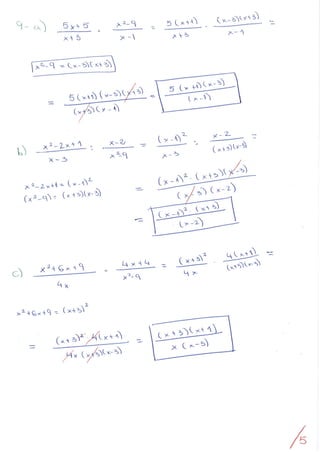 9- a) (5x+5)/(x+3) · (x²-9)/(x-1) = 5(x+1)/(x+3) · (x-3)(x+3)/(x-1) =
x²-9 = (x-3)(x+3)
= 5(x+1)(x-3)(x+3)/((x+3)(x-1)) = 5(x+1)(x-3)/(x-1)
b) (x²-2x+1)/(x-3) : (x-2)/(x²-9) = (x-1)²/(x-3) : (x-2)/((x+3)(x-3)) =
x²-2x+1 = (x-1)²
(x²-9) = (x+3)(x-3)
= (x-1)²·(x+3)(x-3)/((x-3)(x-2))
= (x-1)²(x+3)/(x-2)
c) (x²+6x+9)/4x · (4x+4)/(x²-9) = (x+3)²/4x · 4(x+1)/((x+3)(x-3)) =
x²+6x+9 = (x+3)²
= (x+3)²·4(x+1)/(4x(x+3)(x-3)) = (x+3)(x+1)/(x(x-3))
/5